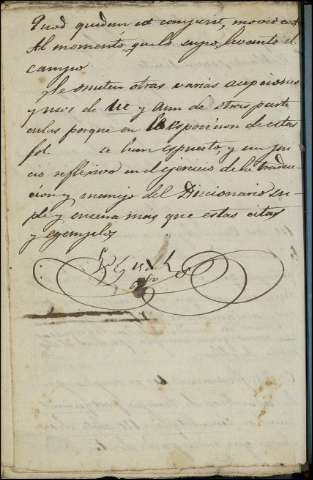 Quod quidem est compert, movió cast
Al momento, que lo supo, levantó el
campo.
Se omiten otras varias acepciones
y usos de Ut y aun de otras part
culas porque en la esposicion de estas
fol se han espuesto y un jui
cio reflexivo en el ejercicio de la traduc
cion y manejo del Diccionario su
ple y enseña mas que estas citas
y ejemplos